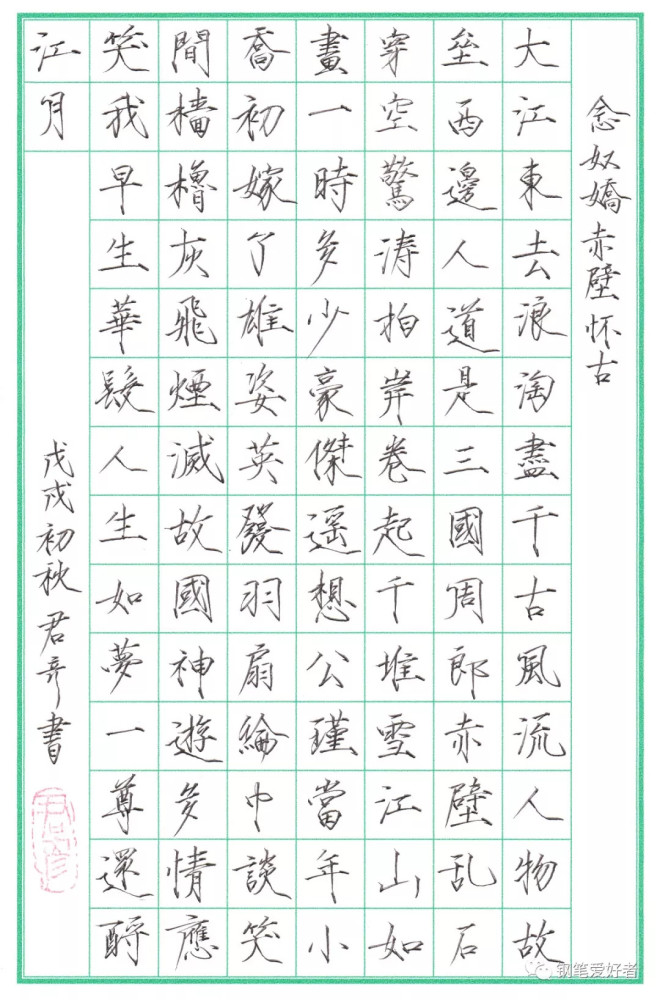 念奴嬌赤壁怀古
大江東去浪淘盡千古風流人物故
垒西邊人道是三國周郎赤壁乱石
穿空驚涛拍岸卷起千堆雪江山如
畫一時多少豪傑遥想公瑾當年小
喬初嫁了雄姿英發羽扇綸巾談笑
間檣櫓灰飛煙滅故國神遊多情應
笑我早生華髮人生如夢一尊還酹
江月
戊戌初秋君彦書
钢笔爱好者